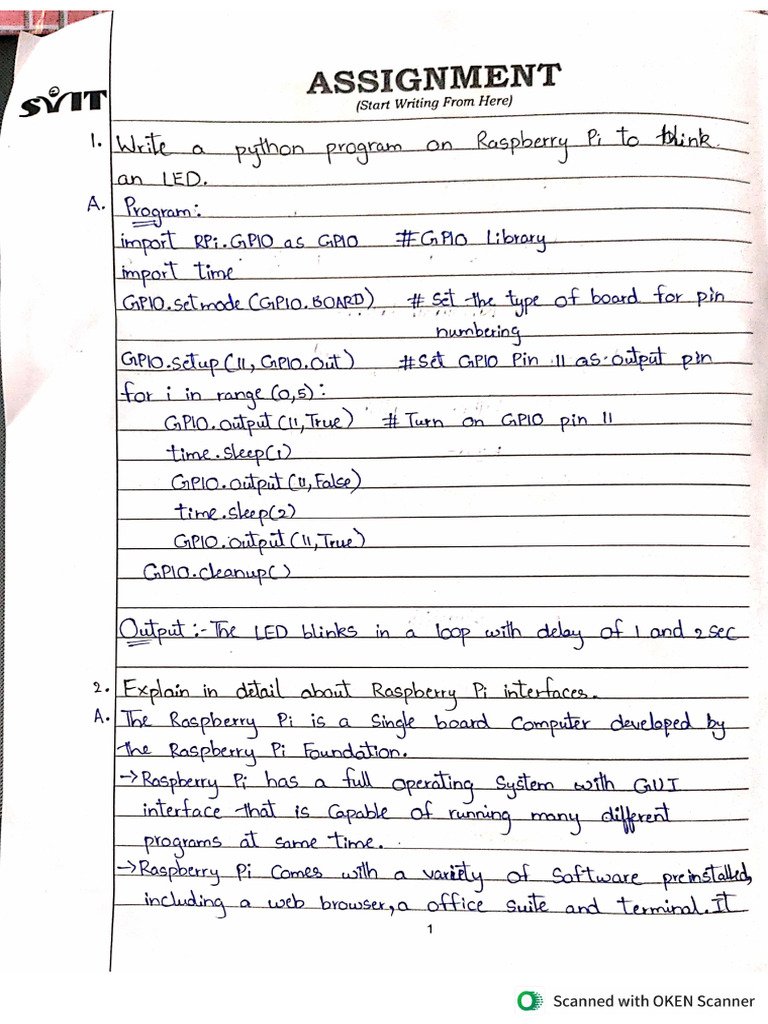 SVIT
ASSIGNMENT
(Start Writing From Here)
1. Write a python program on Raspberry Pi to blink
an LED.
A. Program:
import RPi.GPIO as GPIO #GPIO Library
import time
GPIO.setmode(GPIO.BOARD) # Set the type of board for pin
numbering
GPIO.setup(11, GPIO.Out) #Set GPIO Pin 11 as output pin
for i in range (0,5):
GPIO.output(11,True) # Turn on GPIO pin 11
time.sleep(1)
GPIO.output(11,False)
time.sleep(2)
GPIO.output(11,True)
GPIO.cleanup()
Output:- The LED blinks in a loop with delay of 1 and 2 sec
2. Explain in detail about Raspberry Pi interfaces.
A. The Raspberry Pi is a Single board Computer developed by
the Raspberry Pi Foundation.
→Raspberry Pi has a full Operating System with GUI
interface that is Capable of running many different
programs at same time.
→Raspberry Pi Comes with a variety of Software preinstalled,
including a web browser, a office suite and terminal. It
1
Scanned with OKEN Scanner